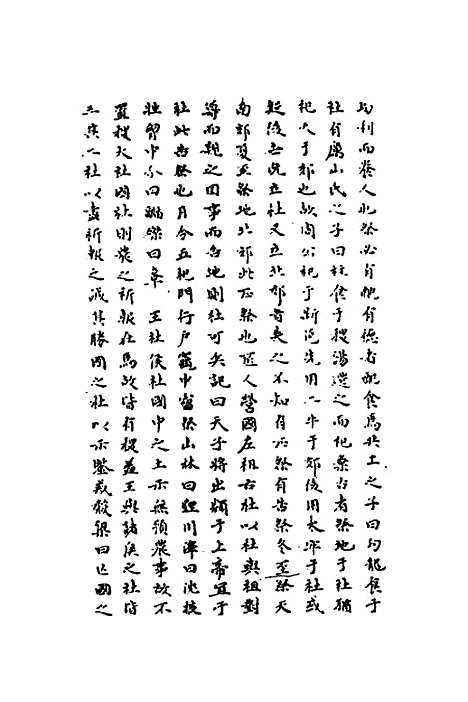 均利而養人也祭必有配有德者配食焉共工之子曰句龍食于
社有厲山氏之子曰柱食于稷湯遷之而祀棄古者祭地于社猶
祀天于郊也故周公祀于新邑先用二牛于郊後用太牢于社或
疑後世既立社又立北郊首矣之不知有正祭有告祭冬至祭天
南郊夏至祭地北郊此正祭也匠人營國左祖右社以社與祖對
尊而親之因事而告地則社可矣記曰天子將出類于上帝宜于
社此告祭也月令五祀門行户竈中霤祭山林曰貍川澤曰沈披
牲胷中分曰疈磔曰辜 王社侯社國中之土示無預農事故不
置稷大社國社則農之祈報在焉故皆有稷蓋王與諸侯之社皆
三其二社以盡祈報之誠其勝國之社以示鑒戒穀梁曰亡國之